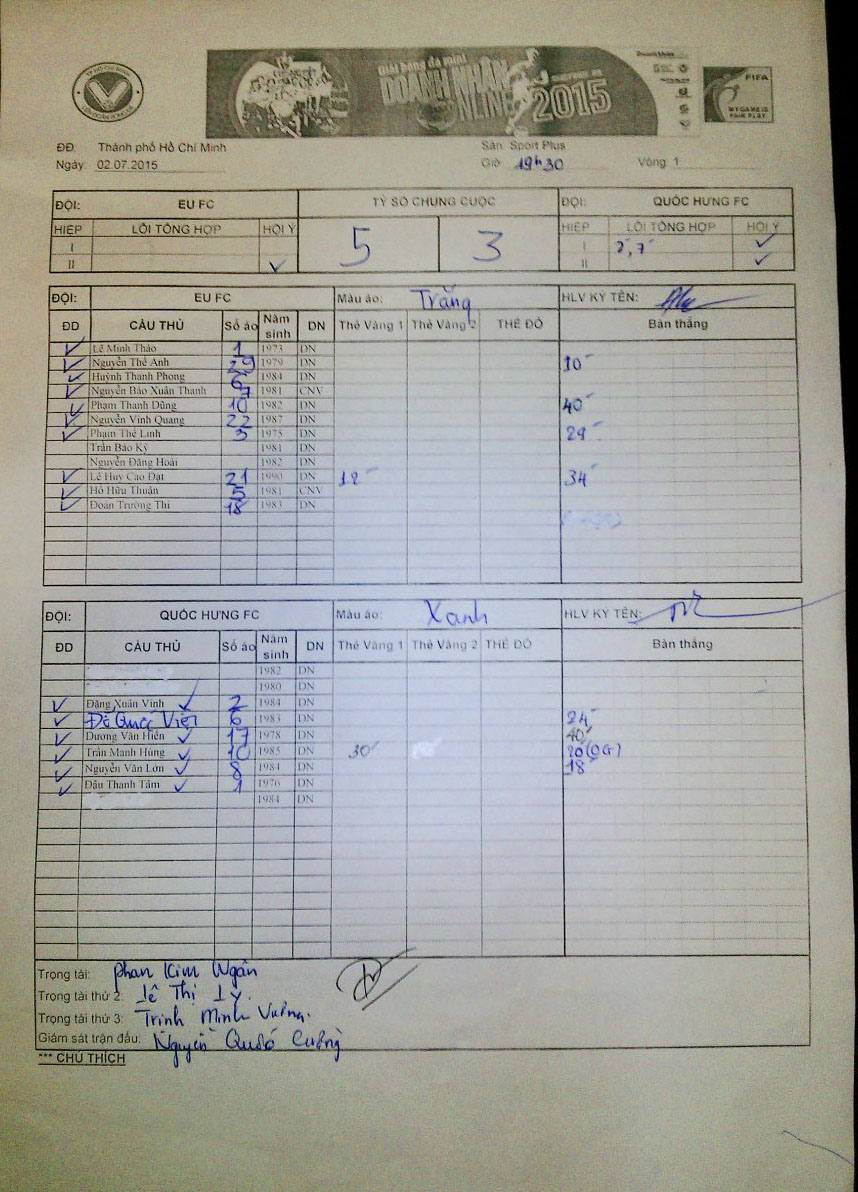 TP HỒ CHÍ MINH
LIÊN ĐOÀN BÓNG ĐÁ
Giải bóng đá mini
DOANH NHÂN
ONLINE 2015
FIFA
MY GAME IS
FAIR PLAY
ĐĐ: Thành phố Hồ Chí Minh Sân Sport Plus
Ngày: 02.07.2015 Giờ: 19h30 Vòng 1
ĐỘI: EU FC TỶ SỐ CHUNG CUỘC ĐỘI: QUỐC HƯNG FC
HIỆP LỖI TỔNG HỢP HỘI Ý 5 3 HIỆP LỖI TỔNG HỢP HỘI Ý
I I 2', 7' ✓
II ✓ II ✓
ĐỘI: EU FC Màu áo: Trắng HLV KÝ TÊN:
ĐD CẦU THỦ Số áo Năm sinh DN Thẻ Vàng 1 Thẻ Vàng 2 THẺ ĐỎ Bàn thắng
✓ Lê Minh Thảo 1 1973 DN
✓ Nguyễn Thế Anh 29 1979 DN 10'
✓ Huỳnh Thanh Phong 6 1984 DN
✓ Nguyễn Bảo Xuân Thanh 7 1981 CNV
✓ Phạm Thanh Dũng 10 1982 DN 40'
✓ Nguyễn Vinh Quang 22 1987 DN
✓ Phạm Thế Linh 3 1975 DN 29'
Trần Bảo Kỳ 1981 DN
Nguyễn Đăng Hoài 1982 DN
✓ Lê Huy Cao Đạt 21 1990 DN 12' 34'
✓ Hồ Hữu Thuận 5 1981 CNV
✓ Đoàn Trường Thi 18 1983 DN
ĐỘI: QUỐC HƯNG FC Màu áo: Xanh HLV KÝ TÊN:
ĐD CẦU THỦ Số áo Năm sinh DN Thẻ Vàng 1 Thẻ Vàng 2 THẺ ĐỎ Bàn thắng
1982 DN
1980 DN
✓ Đặng Xuân Vinh ✓ 2 1984 DN
✓ Đỗ Quốc Việt 6 1983 DN 24'
✓ Dương Văn Hiền ✓ 17 1978 DN 40'
✓ Trần Mạnh Hùng ✓ 10 1985 DN 30' 20(OG)
✓ Nguyễn Văn Lớn ✓ 8 1984 DN 18'
✓ Đậu Thanh Tâm ✓ 1 1976 DN
1984 DN
Trọng tài: Phan Kim Ngân
Trọng tài thứ 2: Lê Thị Ly.
Trọng tài thứ 3: Trịnh Minh Vương.
Giám sát trận đấu: Nguyễn Quốc Cường
*** CHÚ THÍCH